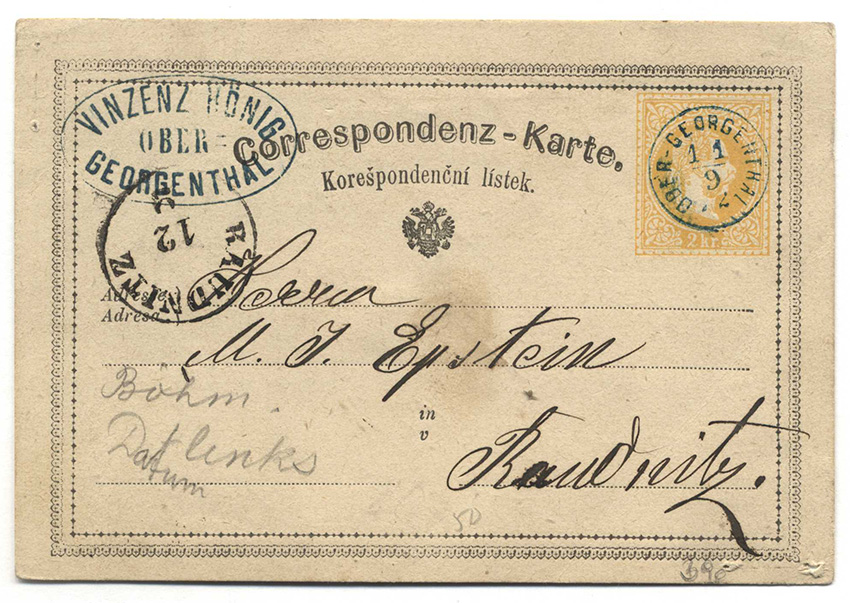 VINZENZ KÖNIG
OBER=
GEORGENTHAL
Correspondenz-Karte.
Korešpondenční lístek.
OBER-GEORGENTHAL
11
9
2 kr.
RAUDNITZ
12
Adresse
Adresa
Herrn
M. J. Epstein
in
v
Raudnitz.
Böhm.
Dat links
Datum
50